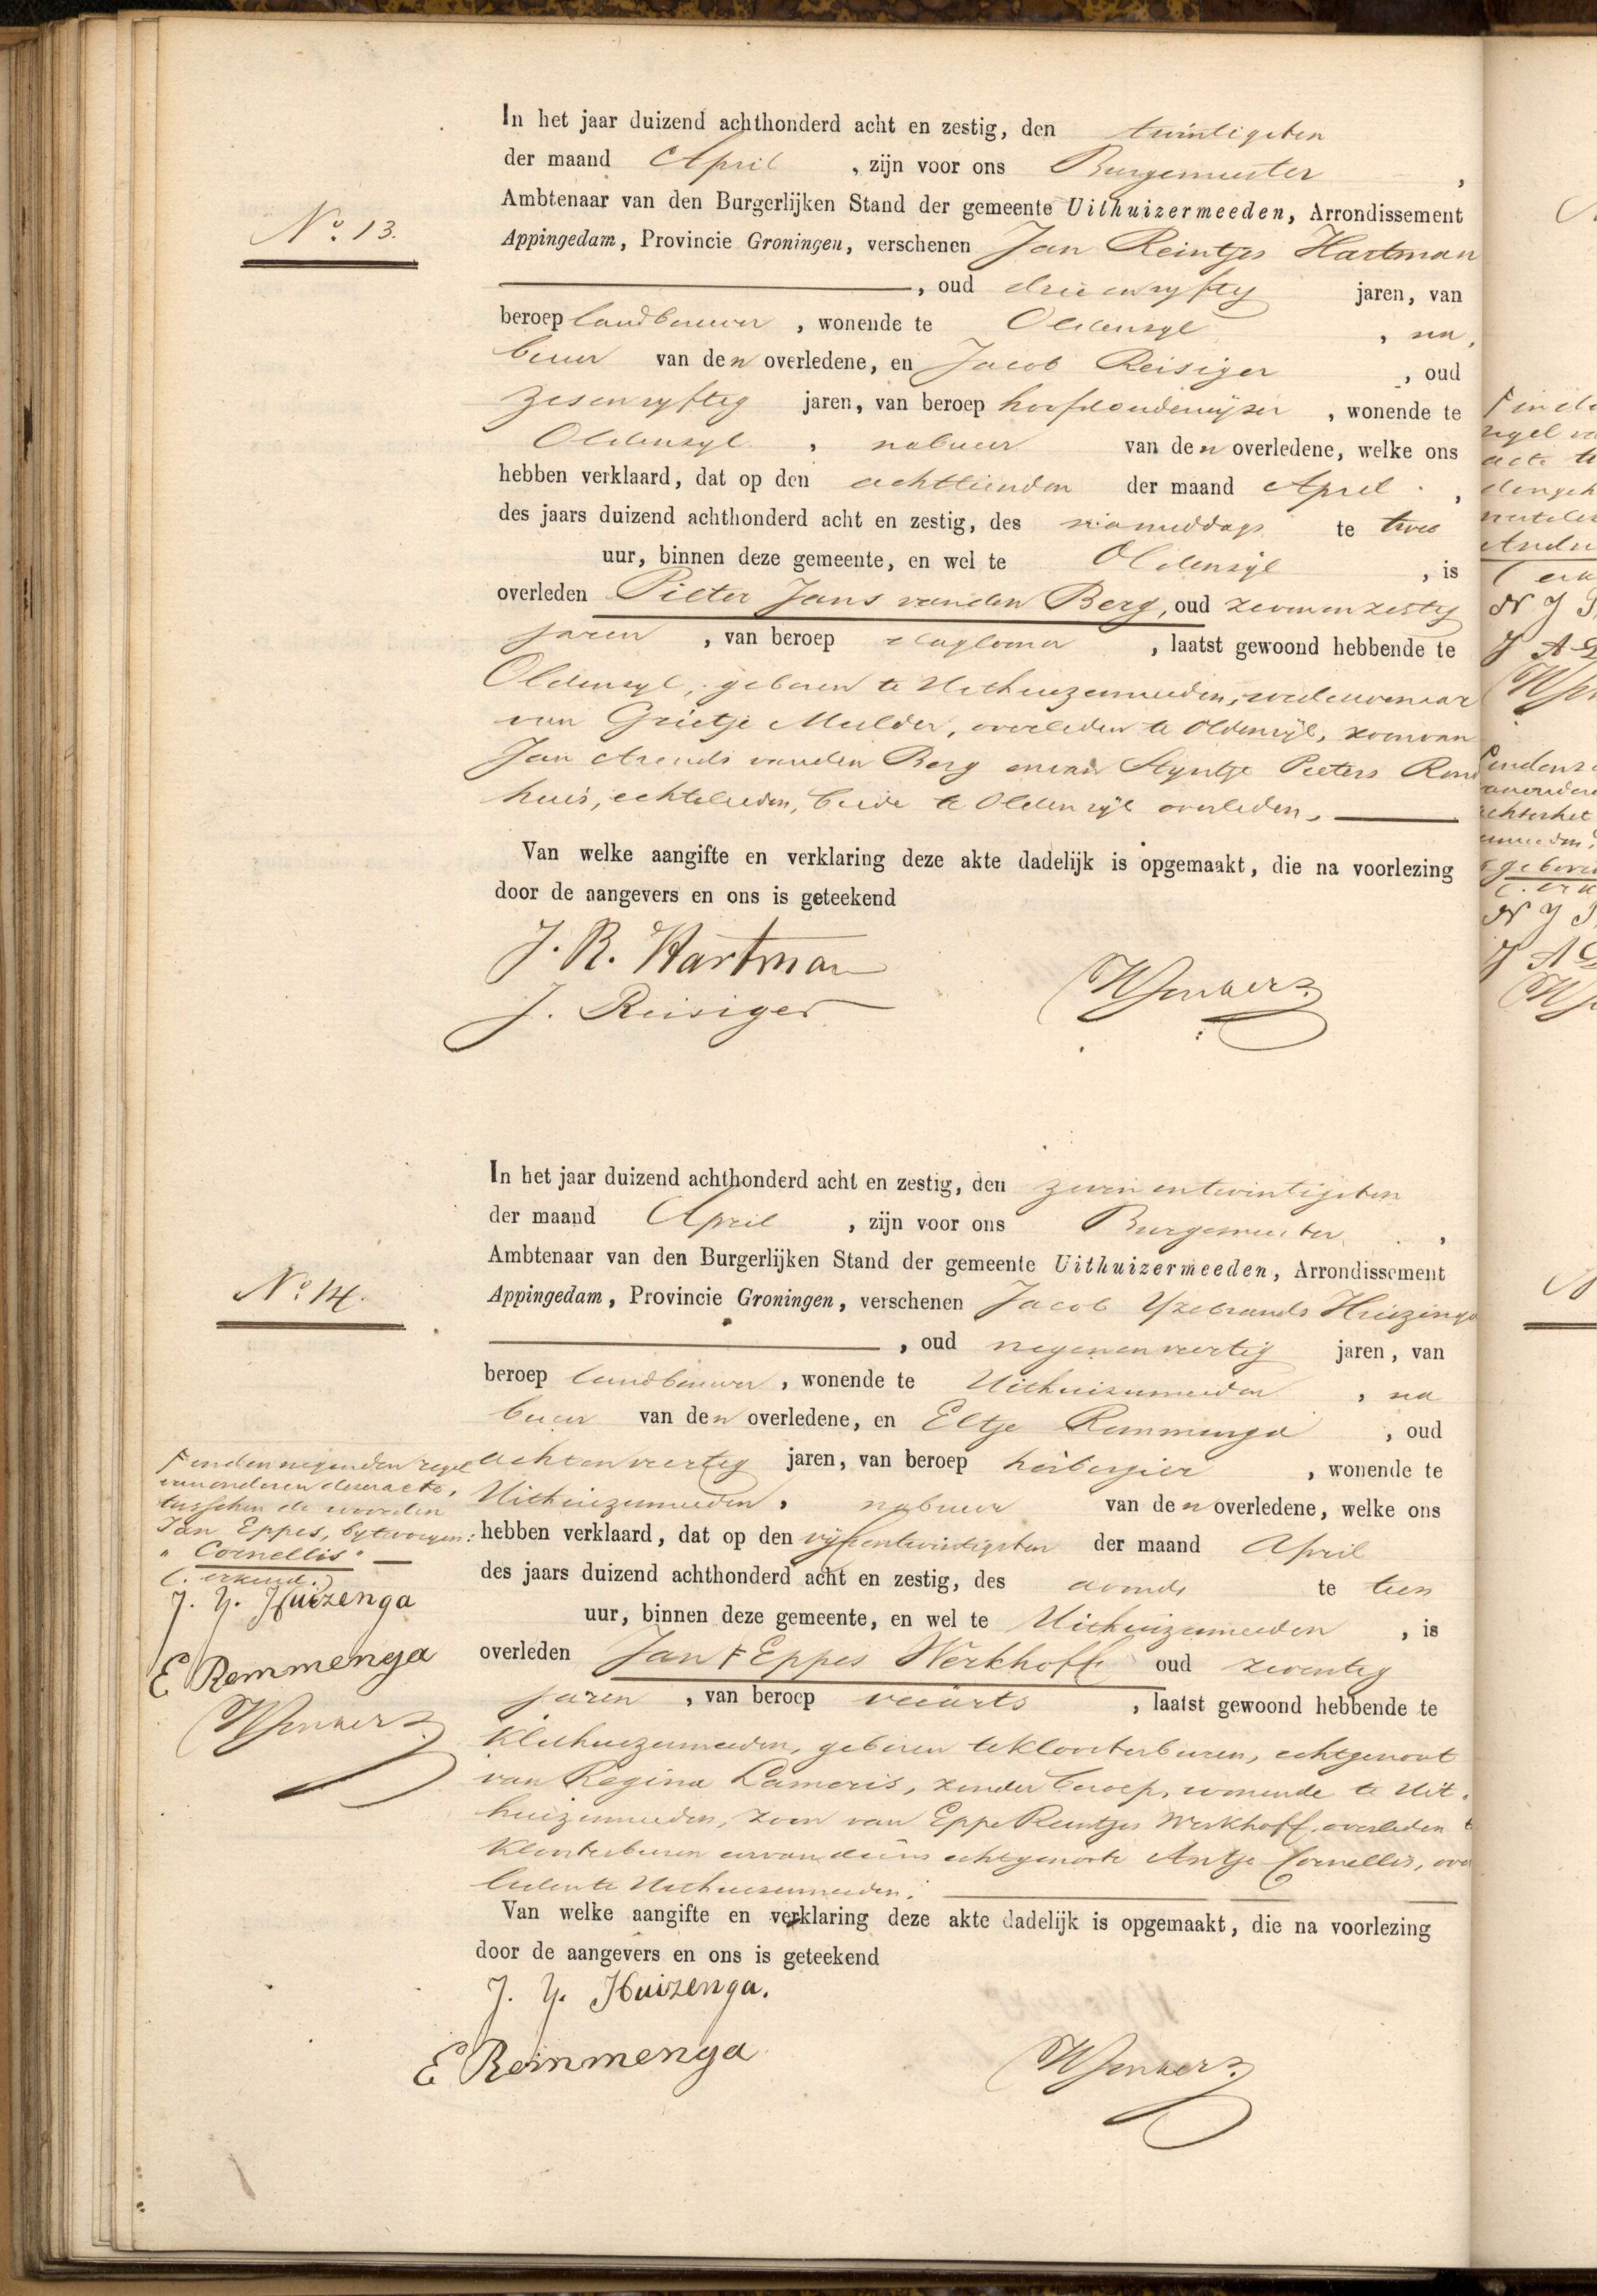 In het jaar duizend achthonderd acht en zestig, den twintigsten
der maand April , zijn voor ons Burgemeester ,
Ambtenaar van den Burgerlijken Stand der gemeente Uithuizermeeden, Arrondissement
No. 13.
Appingedam, Provincie Groningen, verschenen Jan Reintjes Hartman
, oud drieenvyftig jaren, van
beroep landbouwer , wonende te Oldenzyl , na
buur van den overledene, en Jacob Reisiger , oud
zesenvyftig jaren, van beroep hoofdonderwijzer , wonende te
Oldenzyl , nabuur van den overledene, welke ons
hebben verklaard, dat op den achttienden der maand April ,
des jaars duizend achthonderd acht en zestig, des namiddags te twee
uur, binnen deze gemeente, en wel te Oldenzijl , is
overleden Pieter Jans van den Berg, oud zevenenzestig
jaren , van beroep dagloner , laatst gewoond hebbende te
Oldenzyl, geboren te Uithuizermeeden, weduwenaar
van Grietje Mulder, overleden te Oldenzijl, zoon van
Jan Arends van den Berg en van Styntje Pieters
huis, echtelieden, beide te Oldenzijl overleden,
Van welke aangifte en verklaring deze akte dadelijk is opgemaakt, die na voorlezing
door de aangevers en ons is geteekend
J. R. Hartman
J. Reisiger
In het jaar duizend achthonderd acht en zestig, den zevenentwintigsten
der maand April , zijn voor ons Burgemeester ,
Ambtenaar van den Burgerlijken Stand der gemeente Uithuizermeeden, Arrondissement
No. 14.
Appingedam, Provincie Groningen, verschenen Jacob Yzebrands Huizinga
, oud negenenveertig jaren, van
beroep landbouwer , wonende te Uithuizermeeden , na
buur van den overledene, en Eltje Remmenga , oud
achtenveertig jaren, van beroep herbergier , wonende te
Uithuizermeeden, nabuur van den overledene, welke ons
hebben verklaard, dat op den vyfentwintigsten der maand April
des jaars duizend achthonderd acht en zestig, des avonds te tien
uur, binnen deze gemeente, en wel te Uithuizermeeden , is
overleden Jan F Eppes Werkhoff oud zeventig
jaren , van beroep veearts , laatst gewoond hebbende te
Uithuizermeeden, geboren te Kloosterburen, echtgenoot
van Regina Lameris, zonder beroep, wonende te Uit-
huizermeeden, zoon van Eppe Reintjes Werkhoff, overleden te
Kloosterburen en van diens echtgenoote Antje Cornellis, over
leden te Uithuizermeeden.
Van welke aangifte en verklaring deze akte dadelijk is opgemaakt, die na voorlezing
door de aangevers en ons is geteekend
J. Y. Huizenga.
E Remmenga
F in den negenden regel
van onderen dezer acte,
tusschen de woorden
Jan Eppes, bytevoegen:
" Cornellis "
J. Y. Huizenga
E Remmenga